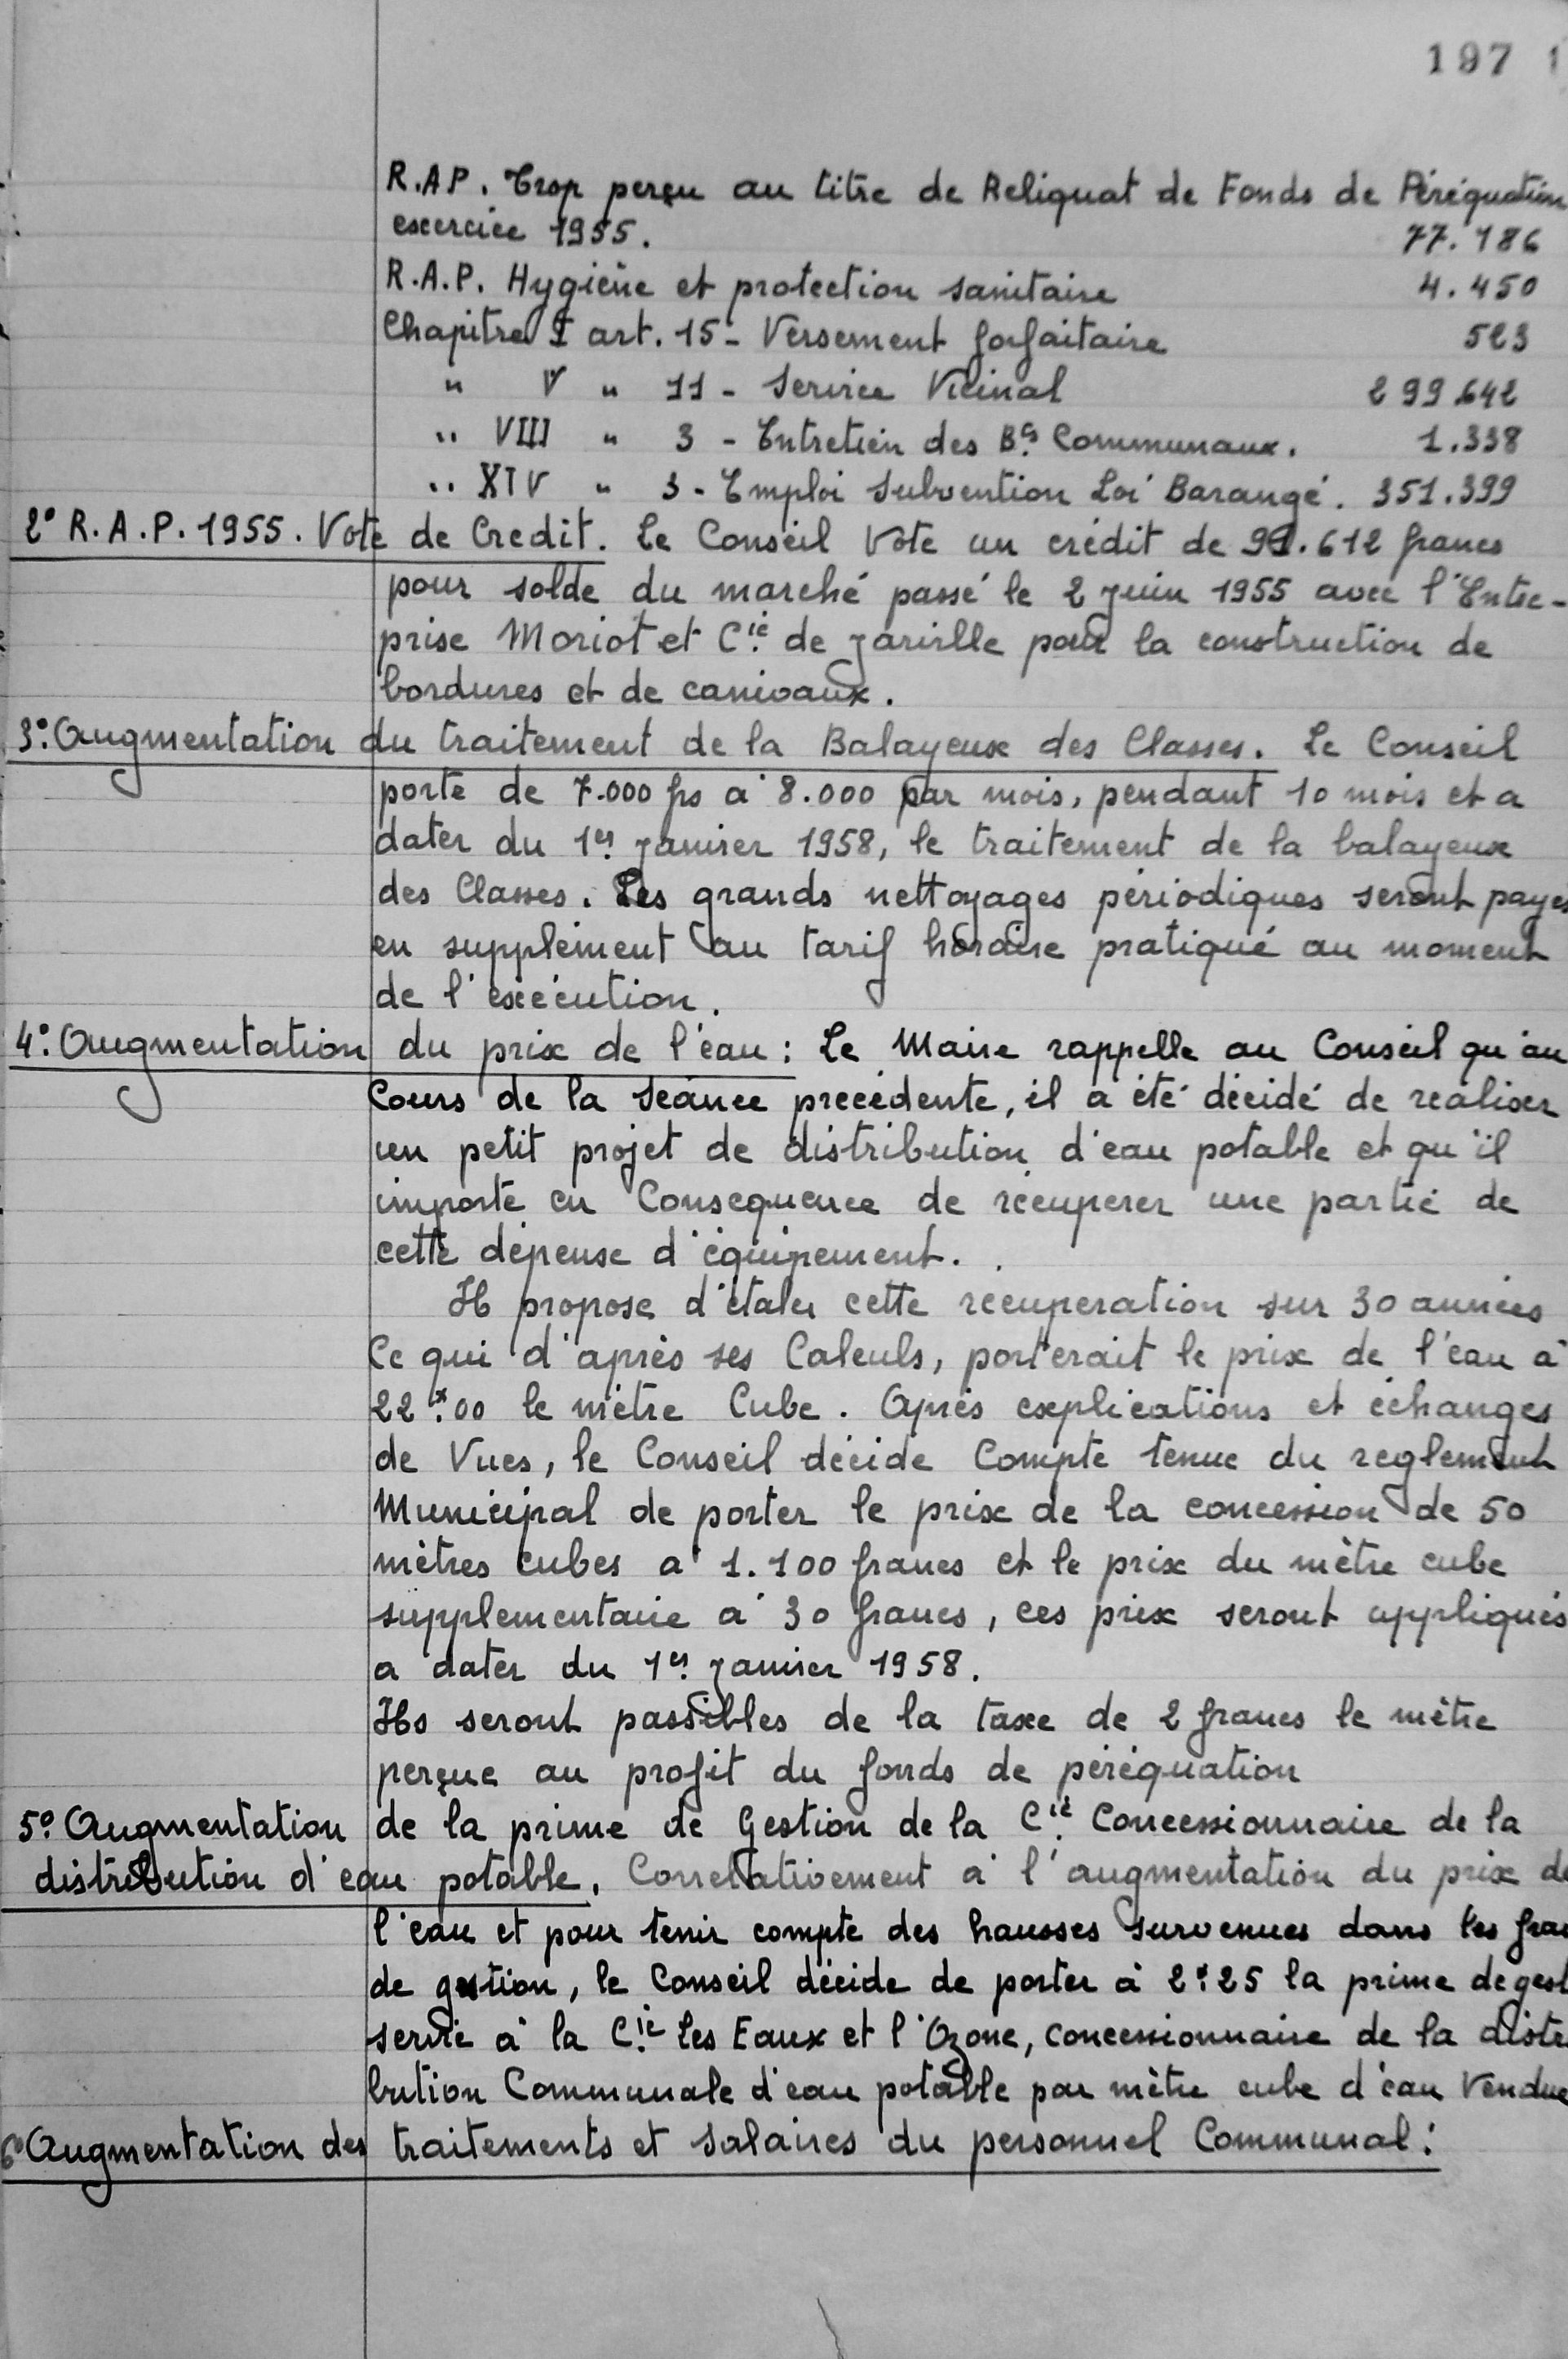 197 1
R.A.P. Trop perçu au titre de Reliquat de Fonds de Péréquation
exercice 1955. 77.186
R.A.P. Hygiène et protection sanitaire 4.450
Chapitre I art. 15 - Versement forfaitaire 523
" V " 11 - Service Vicinal 299.642
" VIII " 3 - Entretien des Bts Communaux. 1.338
" XIV " 3 - Emploi Subvention Loi Barangé. 351.399
2° R.A.P. 1955. Vote de Crédit. Le Conseil Vote un crédit de 91.612 francs
pour solde du marché passé le 2 Juin 1955 avec l'Entre-
prise Moriot et Cie de Jarville pour la construction de
bordures et de caniveaux.
3° Augmentation du traitement de la Balayeuse des Classes. Le Conseil
porte de 7.000 frs à 8.000 par mois, pendant 10 mois et a
dater du 1er Janvier 1958, le traitement de la balayeuse
des Classes. Les grands nettoyages périodiques seront payés
en supplément au tarif horaire pratiqué au moment
de l'exécution.
4° Augmentation du prix de l'eau : Le Maire rappelle au Conseil qu'au
Cours de la Séance précédente, il a été décidé de réaliser
un petit projet de distribution d'eau potable et qu'il
importe en Conséquence de récupérer une partie de
cette dépense d'équipement.
Il propose d'étaler cette récupération sur 30 années
Ce qui d'après ses Calculs, porterait le prix de l'eau à
22f.00 le mètre Cube. Après explications et échanges
de Vues, le Conseil décide Compte tenue du règlement
Municipal de porter le prix de la concession de 50
mètres cubes à 1.100 francs et le prix du mètre cube
supplémentaire à 30 francs, ces prix seront appliqués
a dater du 1er Janvier 1958.
Ils seront passibles de la taxe de 2 francs le mètre
perçue au profit du fonds de péréquation
5° Augmentation de la prime de Gestion de la Cie Concessionnaire de la
distribution d'eau potable. Corrélativement à l'augmentation du prix de
l'eau et pour tenir compte des hausses survenues dans les frai
de gestion, le Conseil décide de porter à 2f25 la prime de gest
servie à la Cie Les Eaux et l'Ozone, concessionnaire de la distri
bution Communale d'eau potable par mètre cube d'eau Vendue
6° Augmentation des traitements et Salaires du personnel Communal :